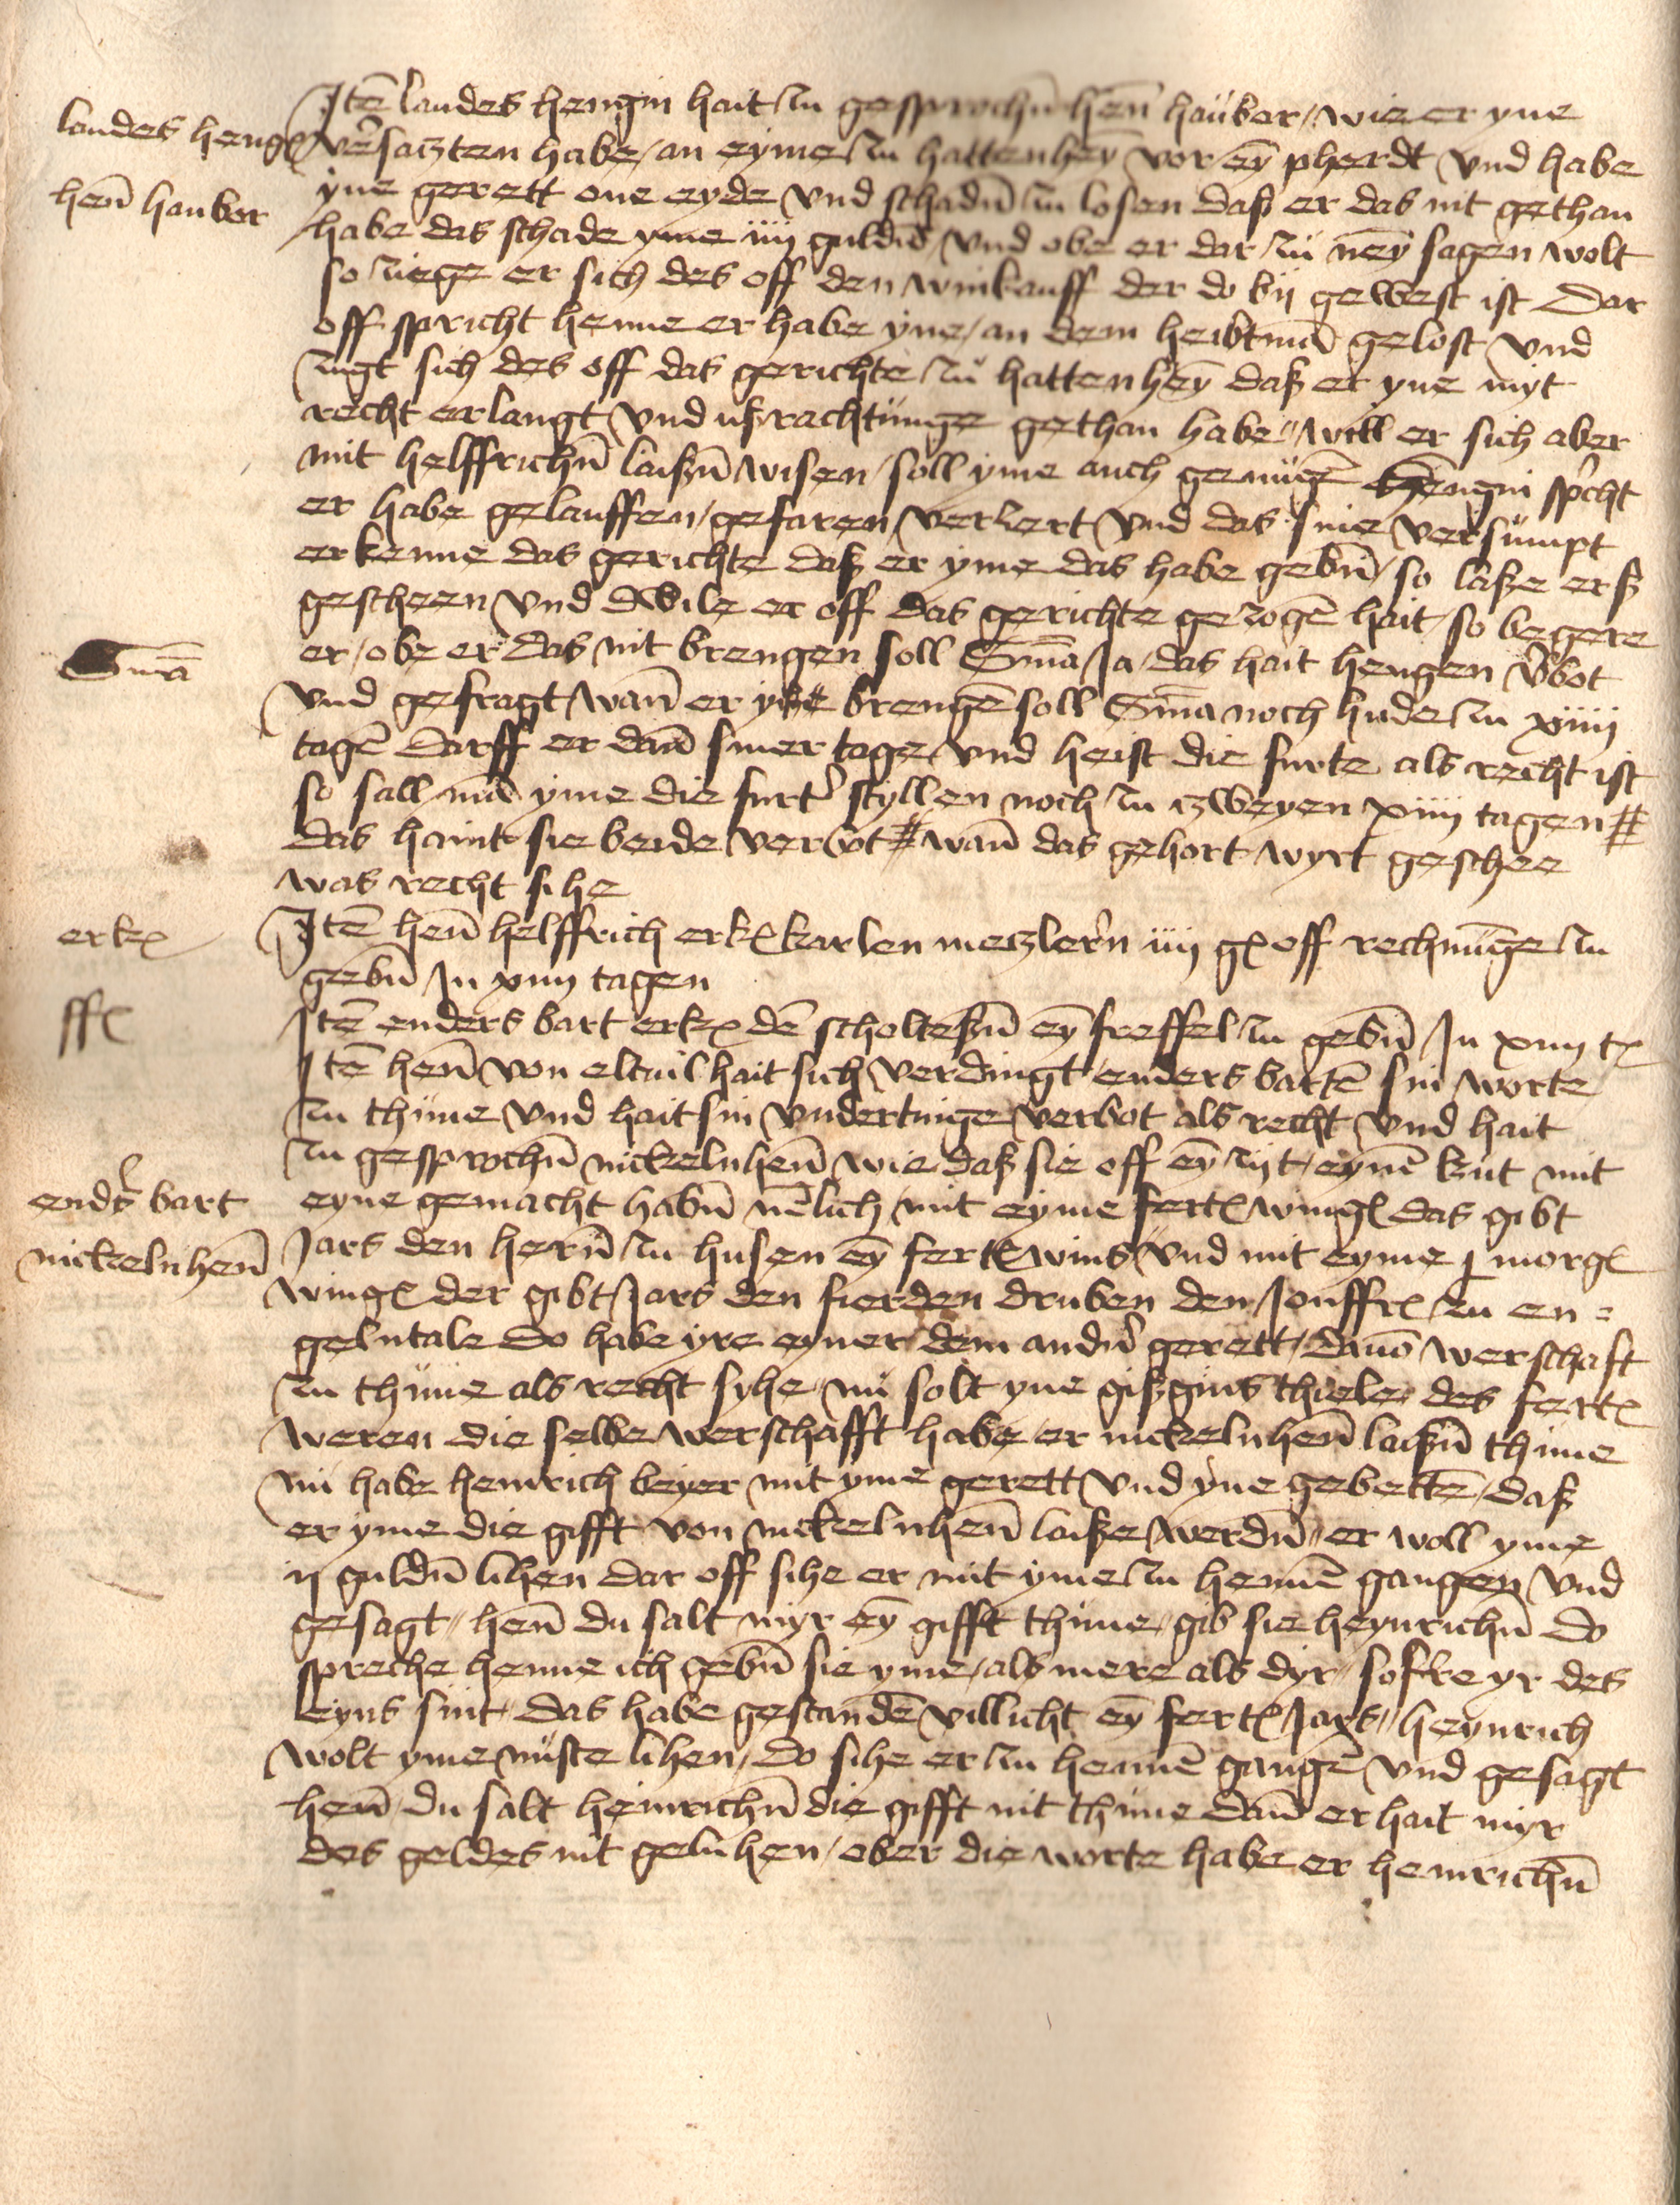 Itē landes hengin hait zu gesprochē hen̄ hauber / wie er yne
landes heng
v̉satzten habe / an eyme zu hattenheȳ vor eȳ pherdt vnd habe
hen̄ hauber
yne gerett one eyde vnd schadn̄ zu losen daß er das nit gethan
habe das schade yme iiij guldē / vnd obe er dar zu neȳ sagen wolt
so ziege er sich des off den winkauff der do bij gewest ist Dar
off spricht henne er habe yne / an dem heubtman̄ gelost vnd
zugt sich des off das gerichte zu hattenheȳ daß er yne myt
recht erlangt vnd ußrachtunge gethan habe // will er sich aber
mit helffrichn̄ laißn̄ wisen / soll yme auch genugē hengin sp̉cht
er habe gelauffen / gefaren / verzert vnd das sine versumpt
erkenne das gerichte daß er yme das habe gebn̄ / so laße erß
gescheen vnd dwile er off das gerichte gezogē hait / so begere
er / obe er das nit brengen soll Sm̄a Ja / das hait hengen v̉bot
Sm̄a
vnd gefragt / wan̄ er yne brengē soll Sm̄a noch hude zu xiiij
tagē Darff er dan̄ siner tage / vnd heist die furte als recht ist
so sall mā yme die furt̉ styllen noch zu zweyen xiiij tagen #
das haint sie beide verbot # wan̄ das gehort wyrt geschee
was recht sihe
erk
Itē hen̄ helffrich erk karlen metzlern̉ iiij g off rechnūge zu
gebn̄ In xiiij tagen
ff
Itē enders bart erk dē scholteßn̄ eȳ freffel zu gebn̄ In xiiij t
Itē hen̄ von eltuil hait sich verdingt enders bartē sin worte
zu thune vnd hait sin vndertinge verbot als recht vnd hait
zu gesprochn̄ nickelnhen̄ wie daß sie off eȳ zijt eynē kut mit
end̉s bart
eyne gemacht habn̄ nēlich mit eyme fert wing das gibt
nickelnhen̄
Jars den hern̄ zu husen eȳ fert wins vnd mit eyme j morg
wing der gibt Jars den fierden druben den Jonffr zu en=
gelntale Do habe yre eyner dem andn̉ gerett / dauō werschafft
zu thune als recht syhe / nu solt yne gißgins thiele des fert
weren die selbe werschafft habe er nickelnhen̄ laißn̄ thune
nu habe heinrich beyer mit yme gerett vnd yne gebettē / daß
er yme die gifft von nickelnhen̄ laiße werdn̄ // er woll yme
ij guldn̄ lihen dar off sihe er mit yme zu hennē gangen vnd
gesagt // hen̄ du salt myr eȳ gifft thune / gib sie heynrichn̄ do
spreche henne ich gebn̄ sie yme / als mere als dyr / sofre yr des
eyns sint / das habe gestandē villicht eȳ fert Jars // heynrich
wolt yme nuste lihen / do sihe er zu hennē gangē vnd gesagt
hen̄ du salt heinrichn̄ die gifft nit thune dan̄ er hait myr
des geldes nit geluhen / ober die worte habe er heinrichn̄